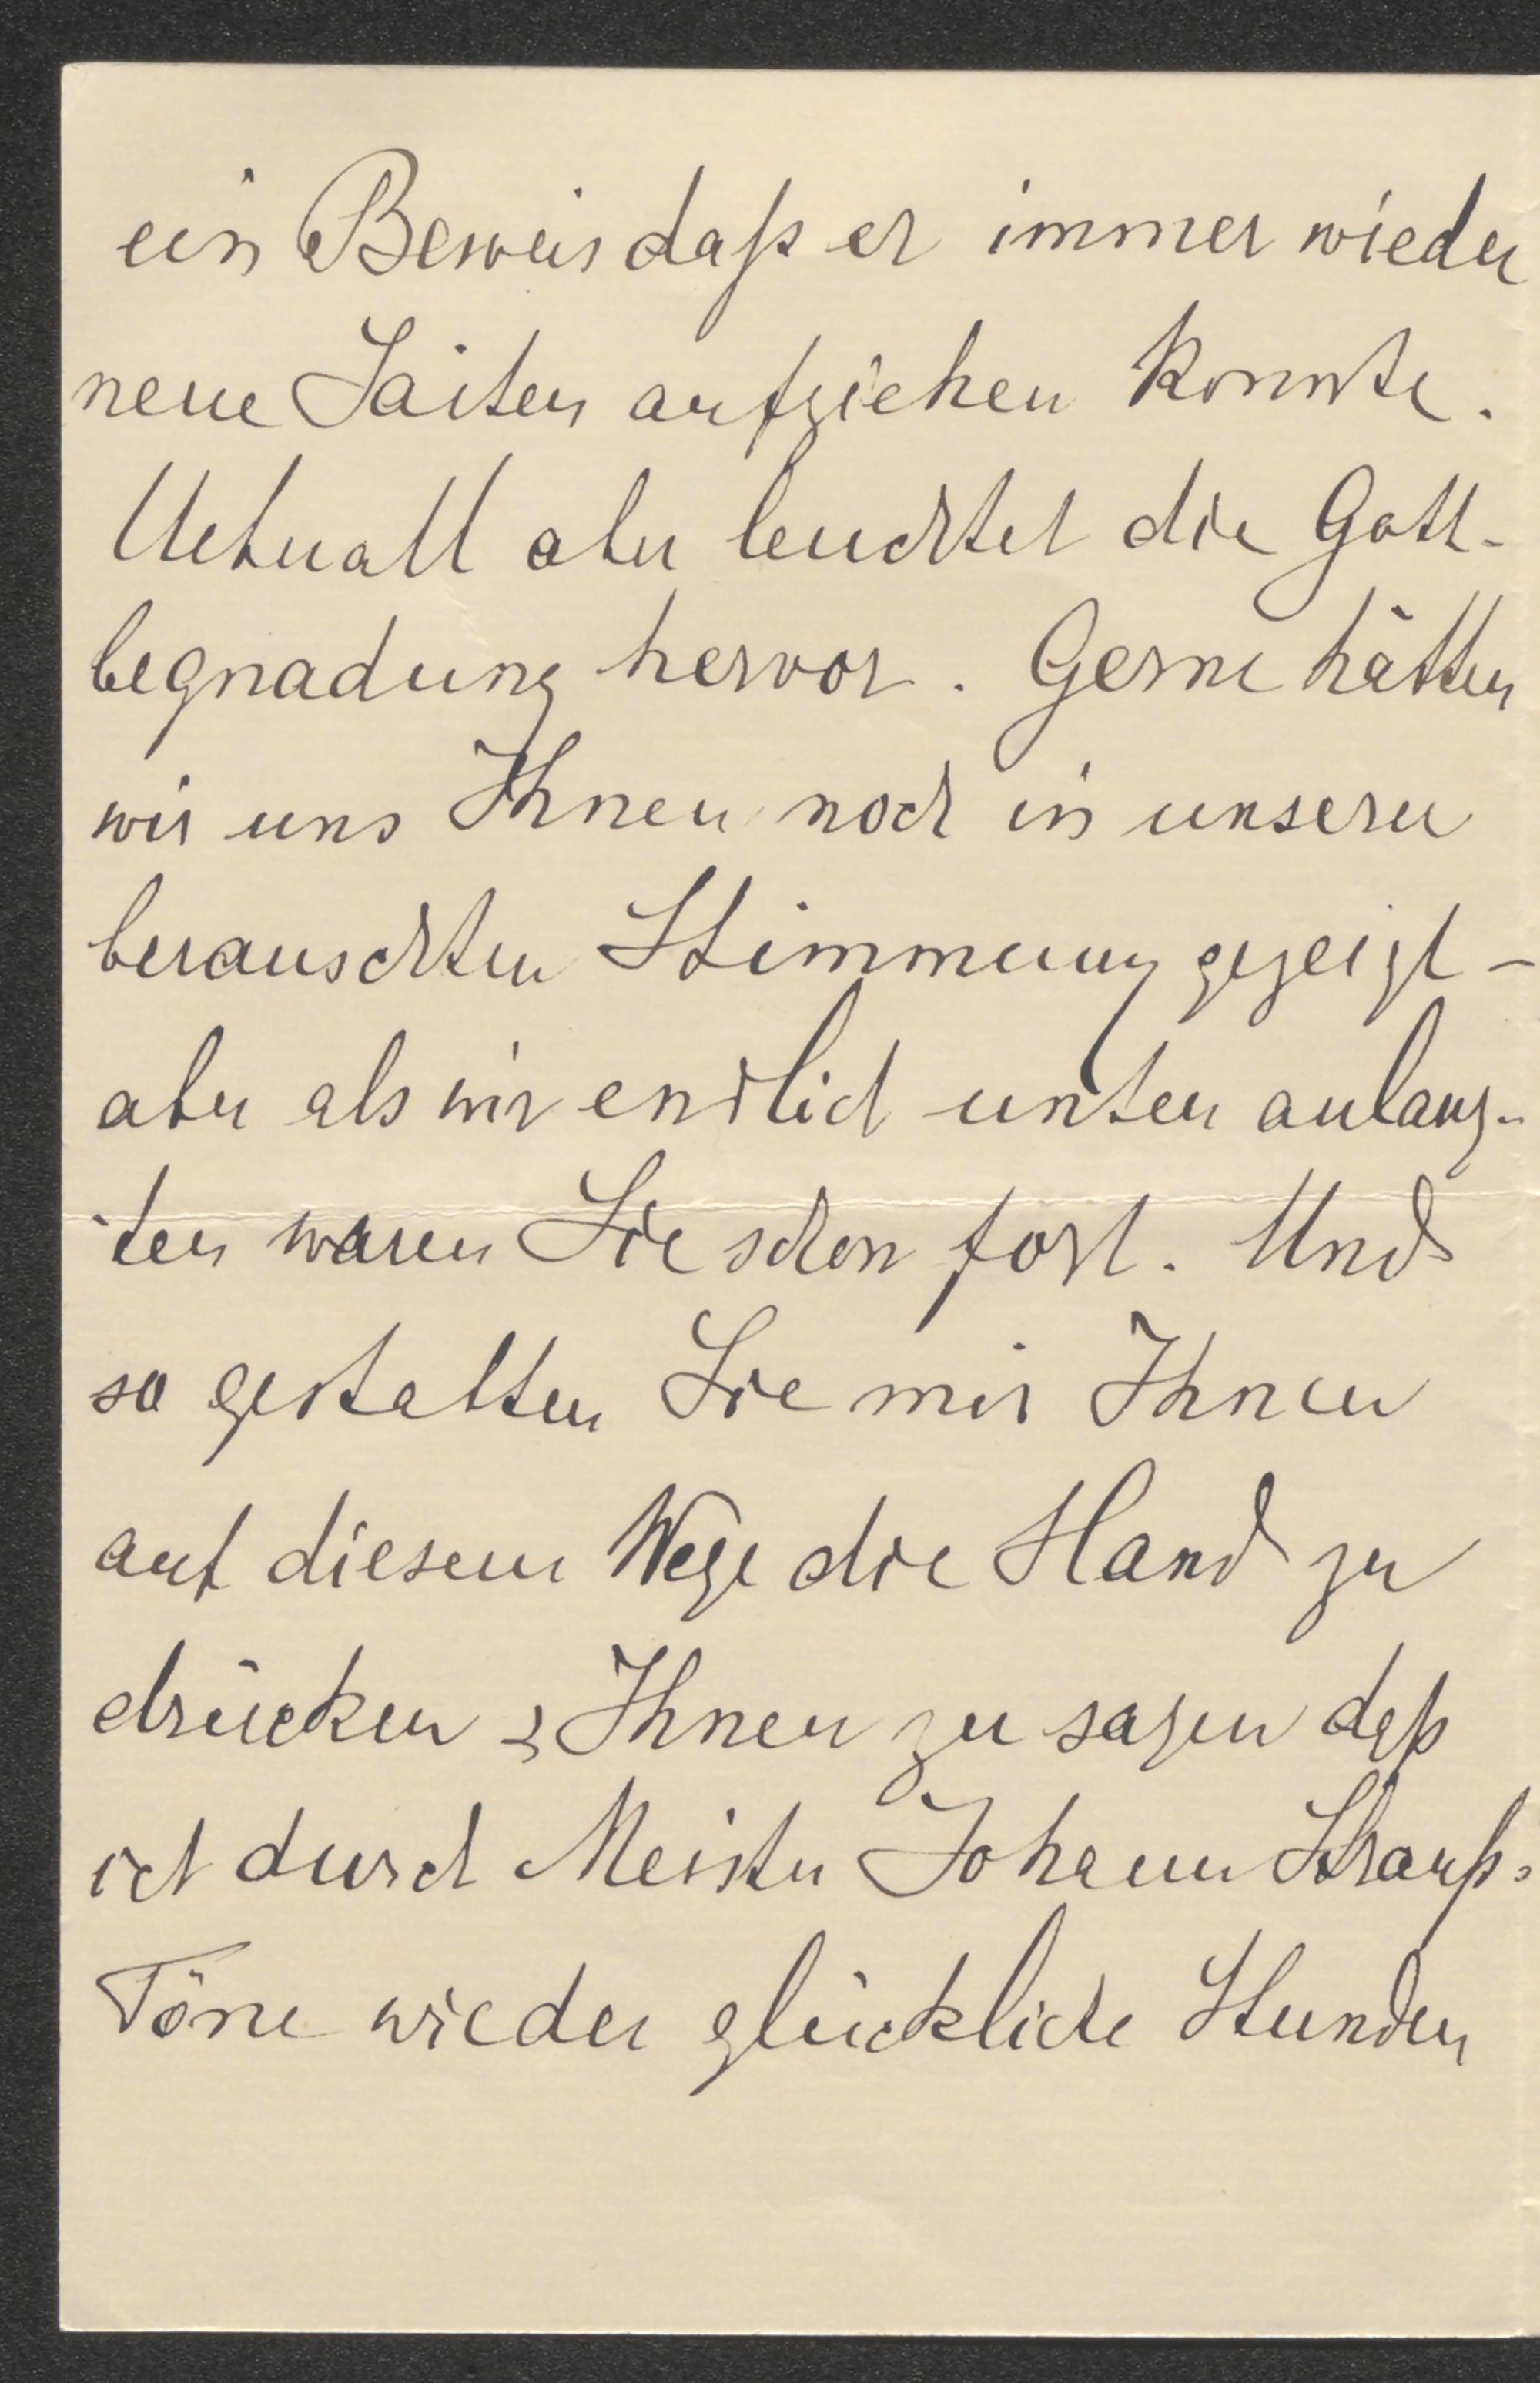 ein Beweis daß er immer wieder
neue Saiten aufziehen konnte.
Ueberall aber leuchtet die Gott-
begnadung hervor. Gerne hätten
wir uns Ihnen noch in unserer
berauschten Stimmung gezeigt –
aber als wir endlich unten anlang-
ten waren Sie schon fort. Und
so gestatten Sie mir Ihnen
auf diesem Wege die Hand zu
drücken & Ihnen zu sagen daß
ich durch Meister Johann Strauß'
Töne wieder glückliche Stunden